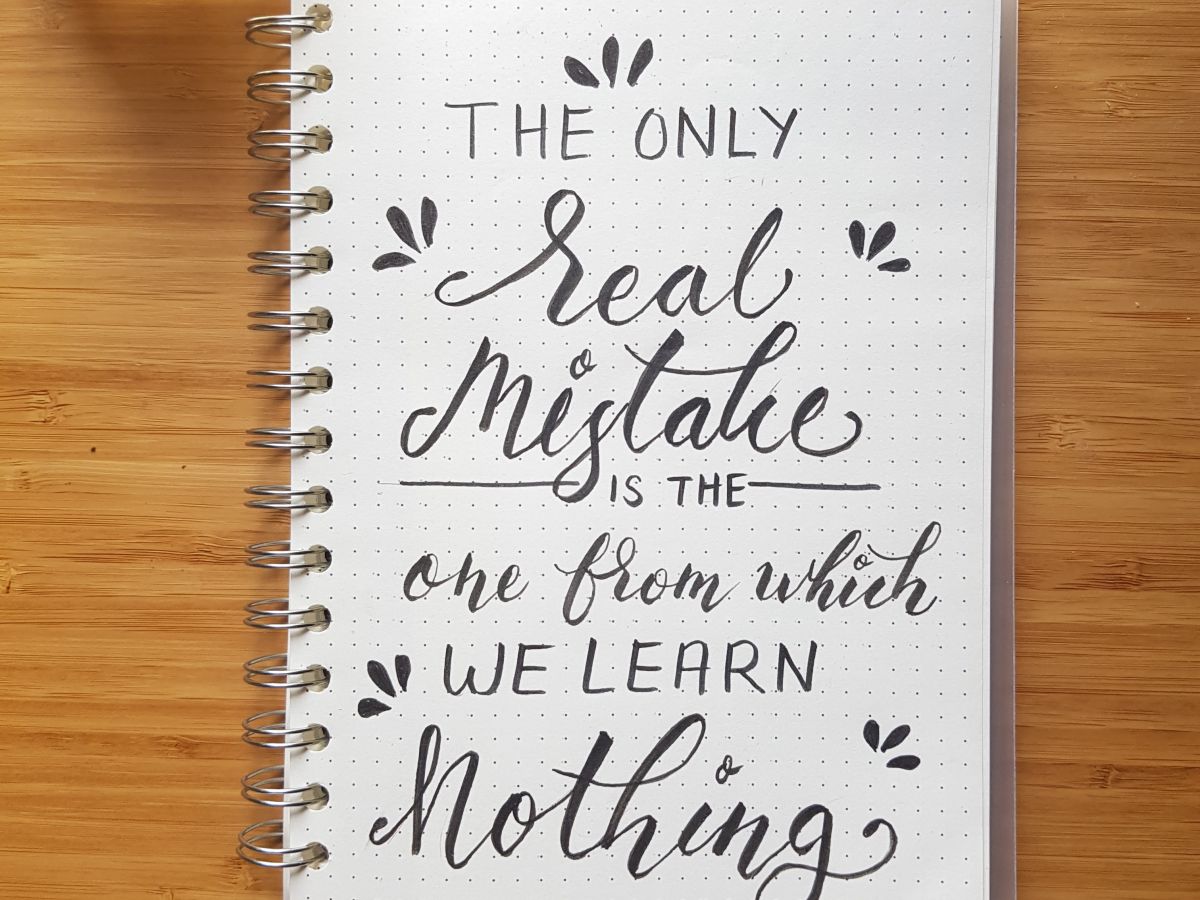 THE ONLY
real
Mistake
IS THE
one from which
WE LEARN
Nothing